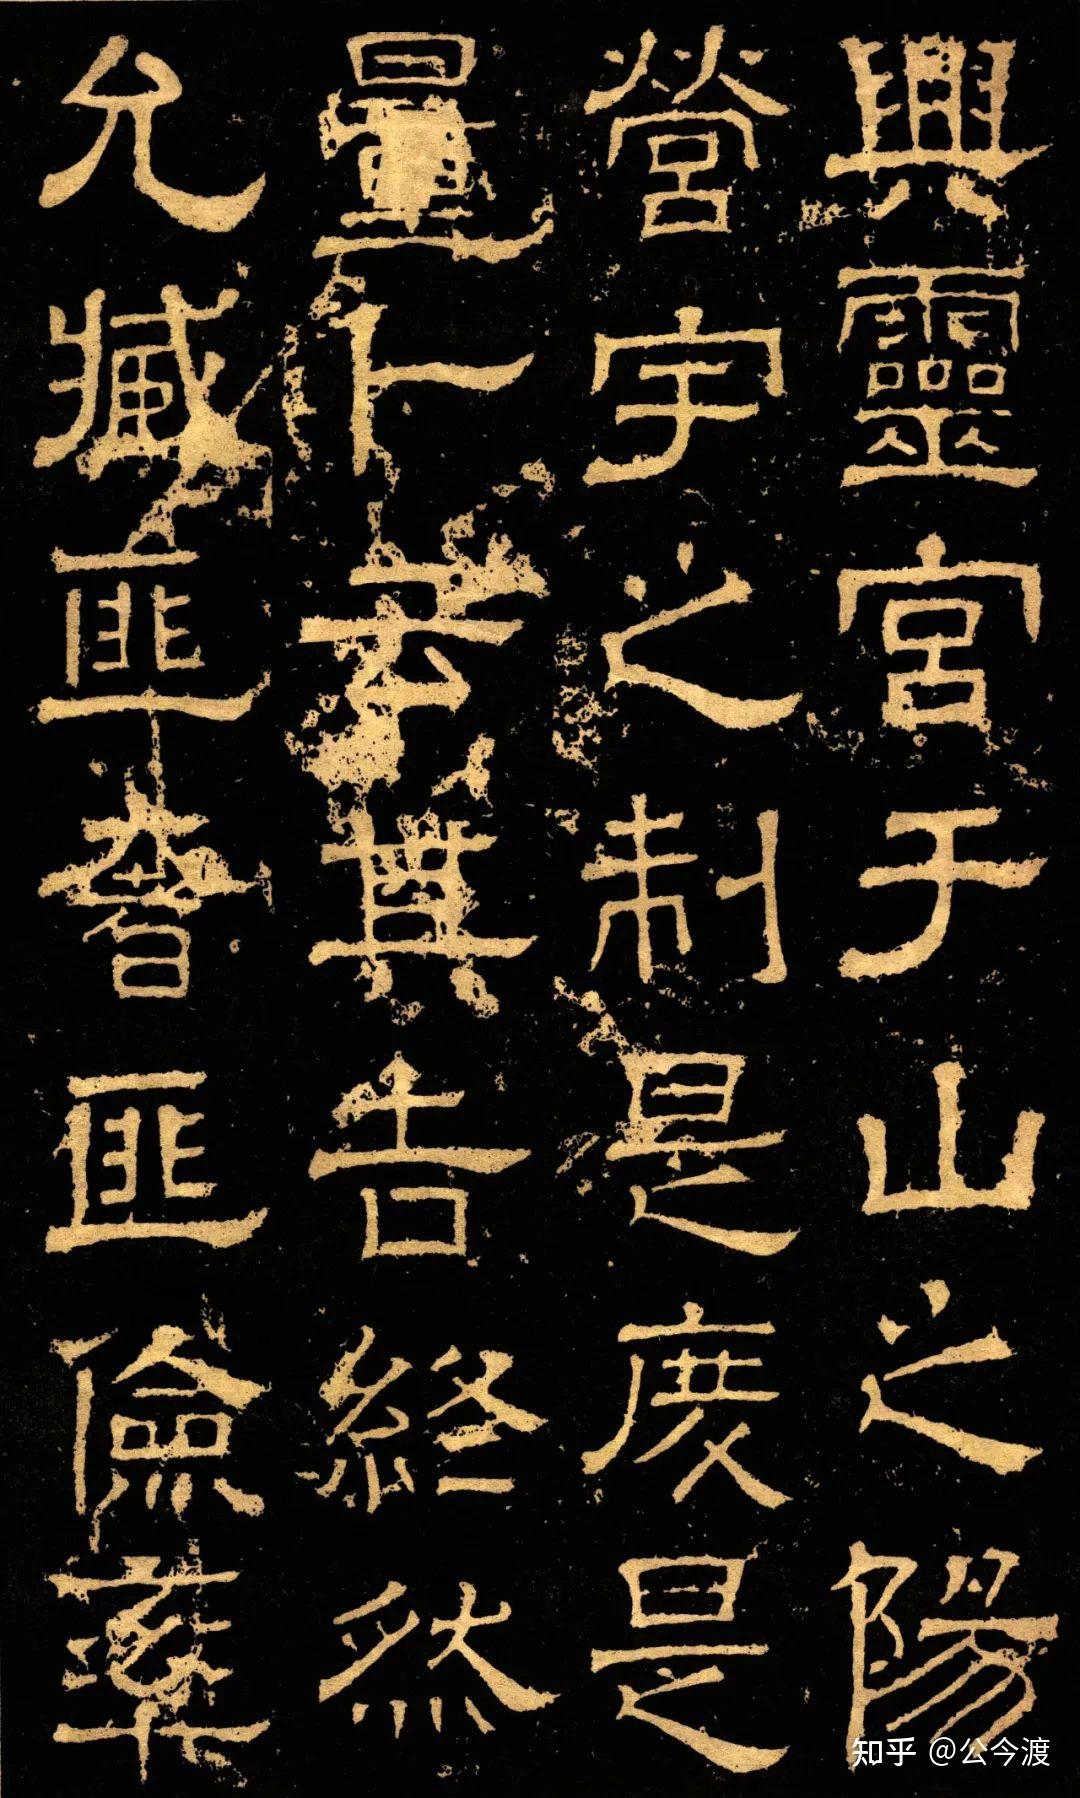 興靈宮于山之陽
營宇之制是度是
量卜云其吉終然
允臧匪奢匪儉率
知乎 @公今渡